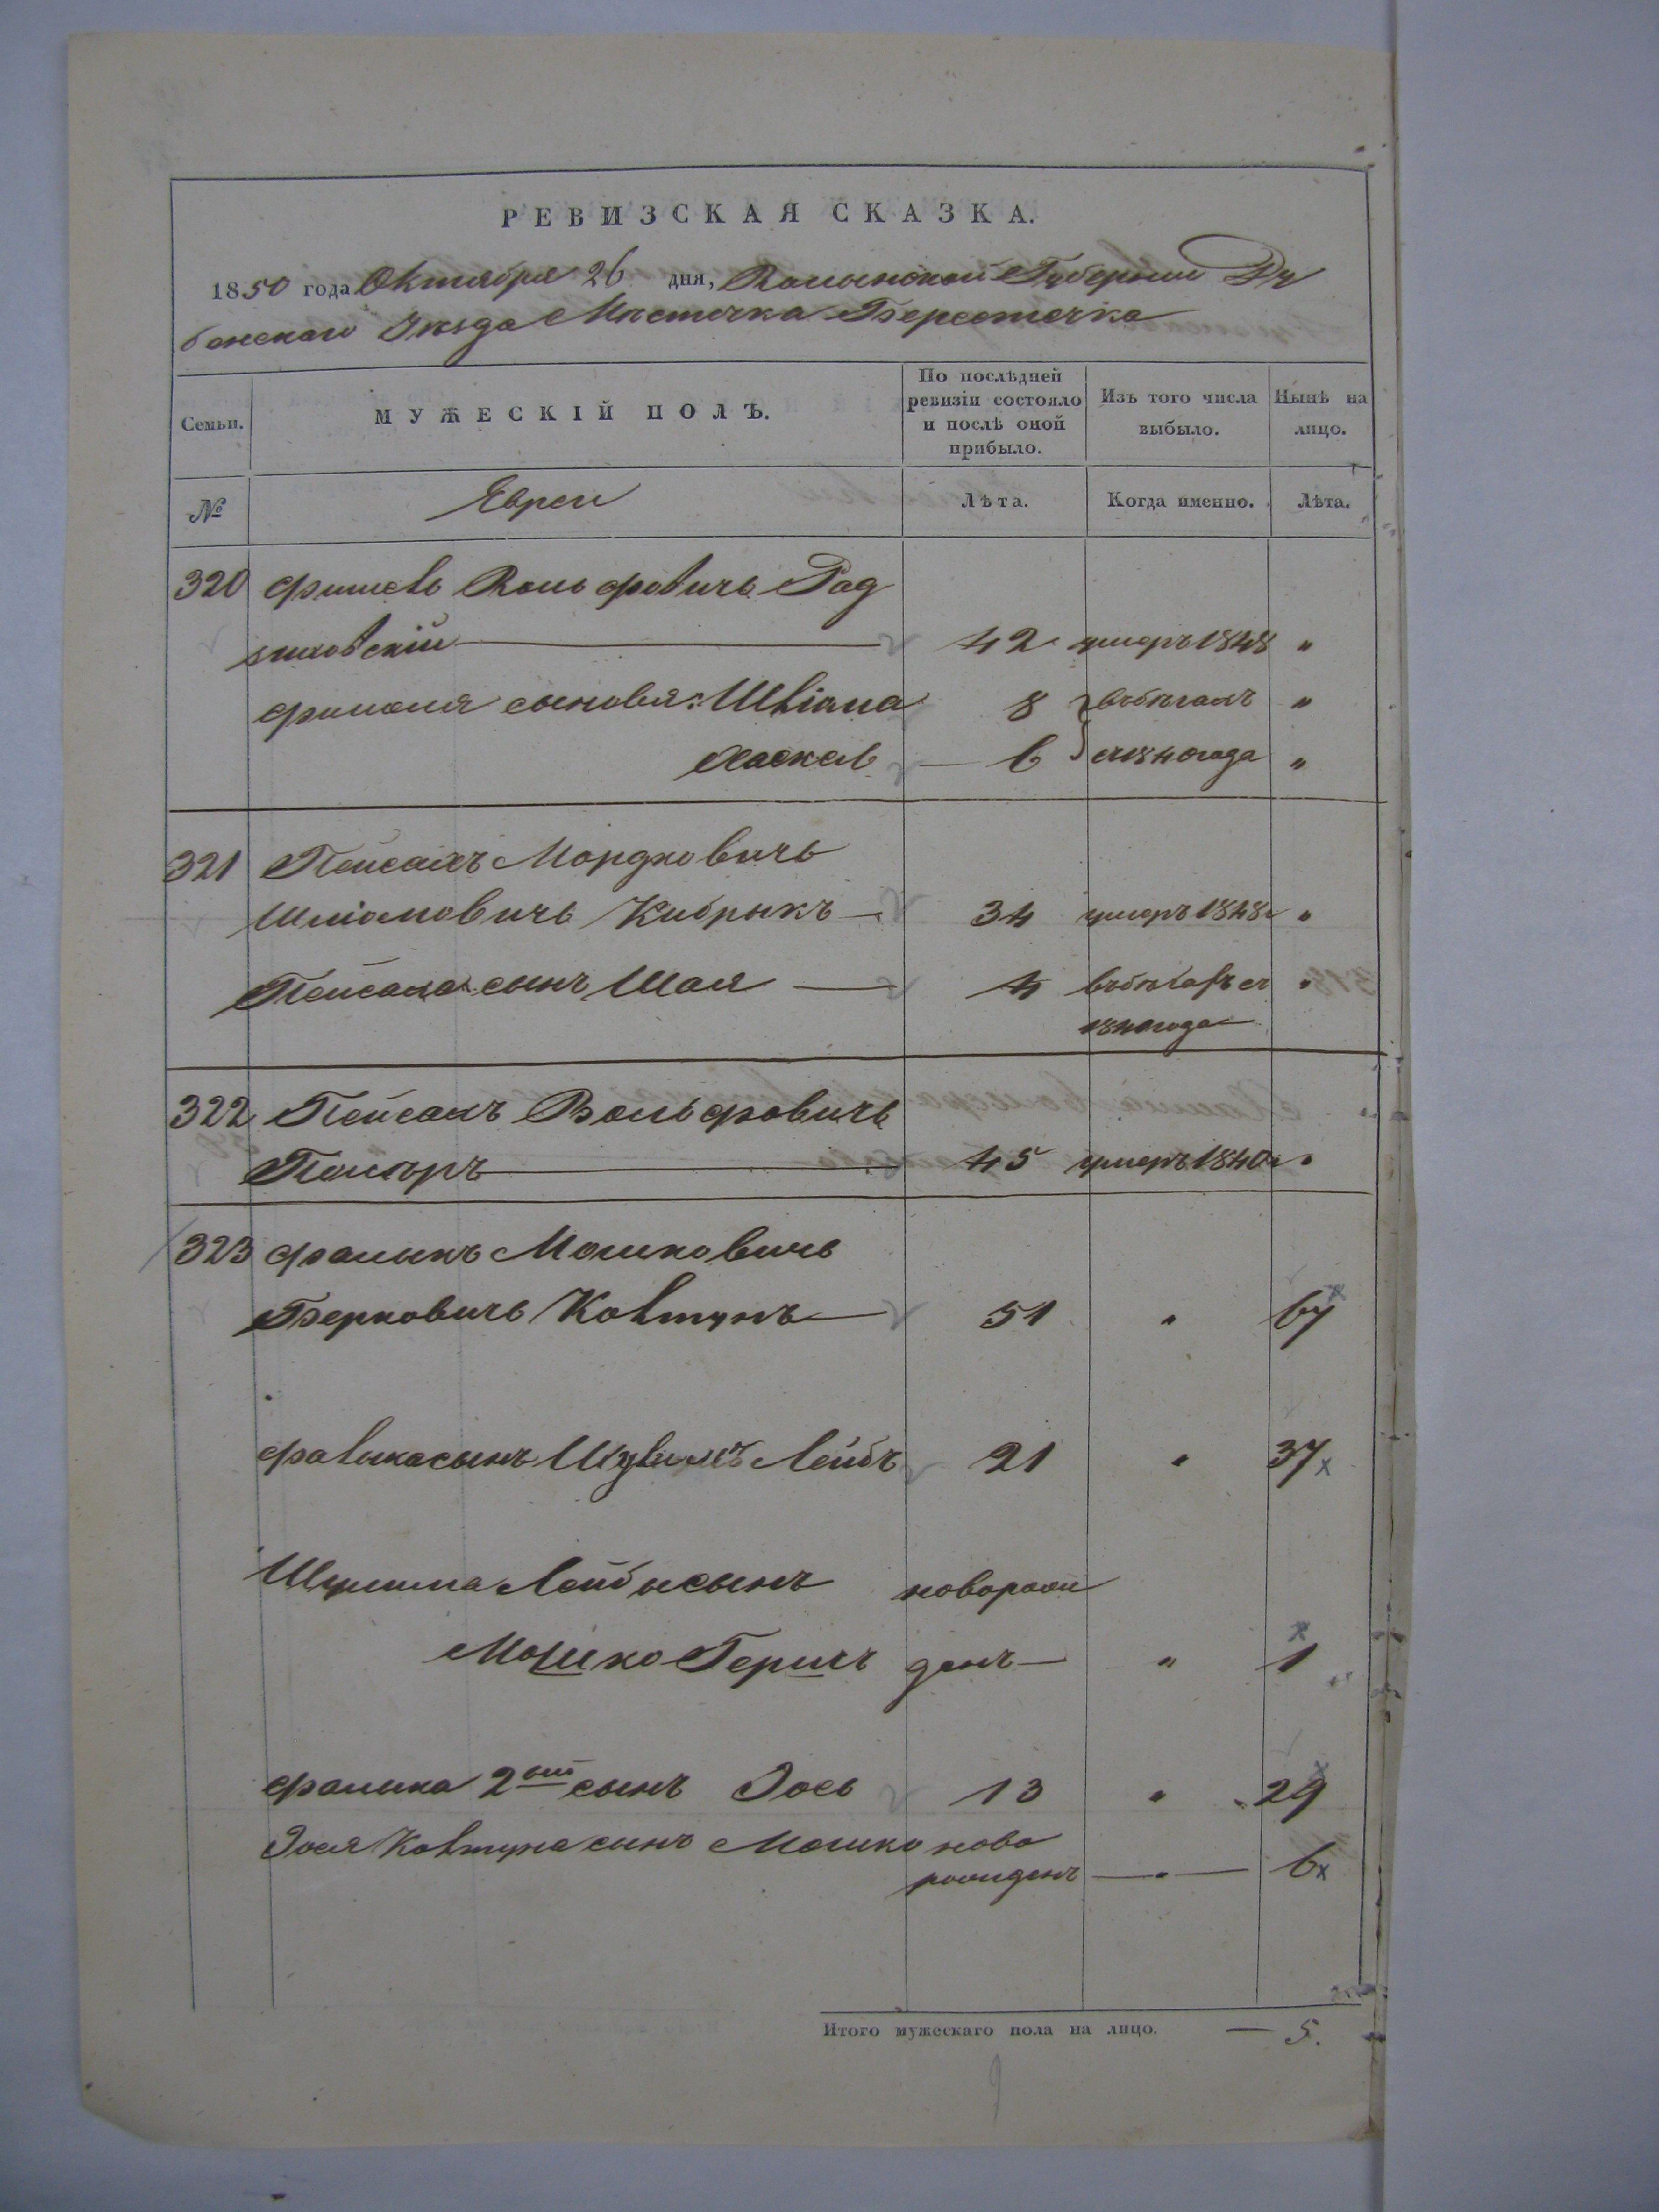 РЕВИЗСКАЯ СКАЗКА.
1850 года Октября 26 дня, Волынской Губернии Ду
бенскаго Уезда Местечка Берестечка
Семьи.
МУЖЕСКІЙ ПОЛЪ.
По послѣдней ревизіи состояло и послѣ оной прибыло.
Изъ того числа выбыло.
Нынѣ на лицо.
№
Евреи
Лѣта.
Когда именно.
Лѣта.
320 Фишель Вольфовичь Рад
зиховскій 42 умеръ 1848 "
Фишеля сыновья: 8 въ бегахъ "
Хаскель 6 съ 1840 года "
321 Пейсахъ Мордковичь
Кибрыкъ 34 умеръ 1848 "
Пейсаха сынъ Шая 4 въ бегахъ съ "
1840 года
322 Пейсахъ Вольфовичь
45 умеръ 1840 "
323 Фалыкъ Мошковичь
Берковичь Ковтунъ 51 " 67
Фалыка сынъ Шулимъ Лейбъ 21 " 37
Шулима Лейбы сынъ новорож
Мошко Гершъ денъ " 1
Фалыка 2ой сынъ Іось 13 " 29
Іося Ковтуна сынъ Мошко ново
рожденъ " 6
Итого мужескаго пола на лицо. — 5.